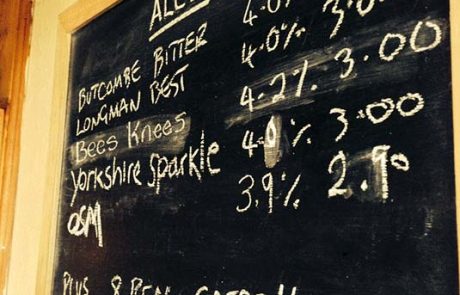 ALE
BUTCOMBE BITTER 4.0%
LONGMAN BEST 4.0% 3.00
Bees Knees 4.2% 3.00
Yorkshire Sparkle 4.0% 3.00
OSM 3.9% 2.90
PLUS 8 REAL